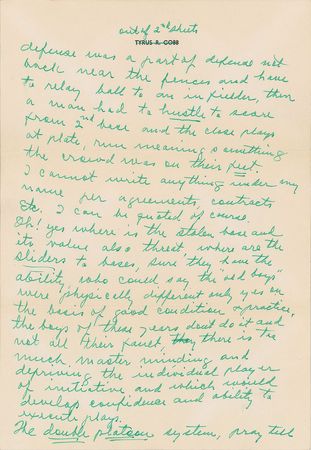 out of 2nd sheets
TYRUS R. COBB
defense was a part of defense not
back near the fences and have
to relay ball to an in fielder, then
a man had to hustle to score
from 2nd base and the close plays
at plate, run meaning something
the crowd was on their feet.
I cannot write anything under my
name per agreements, contracts
etc. I can be quoted of course.
Oh! yes where is the stolen base and
its value also threat where are the
sliders to bases, sure they have the
ability, who could say the "old boys"
were physically different only yes on
the basis of good condition & practice,
the boys of these years dont do it and
not all their fault, there is too
much master minding and
depriving the individual player
of initiative and which would
develop confidence and ability to
execute play.
The double platoon system, pray tell